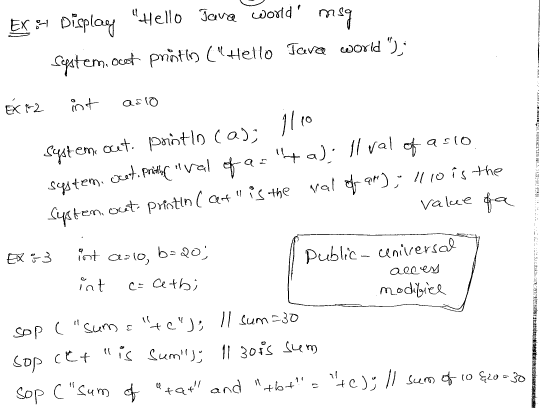 EX :-1 Display "Hello Java world" msg
System.out println ("Hello Java world");
EX :-2 int a=10
system.out. println (a); //10
system.out.println("val of a = "+a); // val of a =10.
System.out.println(a+"is the val of a"); //10 is the value of a
EX :-3 int a=10, b=20;
int c= a+b;
Public - universal
access
modifier
sop ("sum = "+c"); // sum=30
sop (c+ "is sum"); // 30is sum
sop ("Sum of "+a+" and "+b+" = "+c); // sum of 10 &20=30